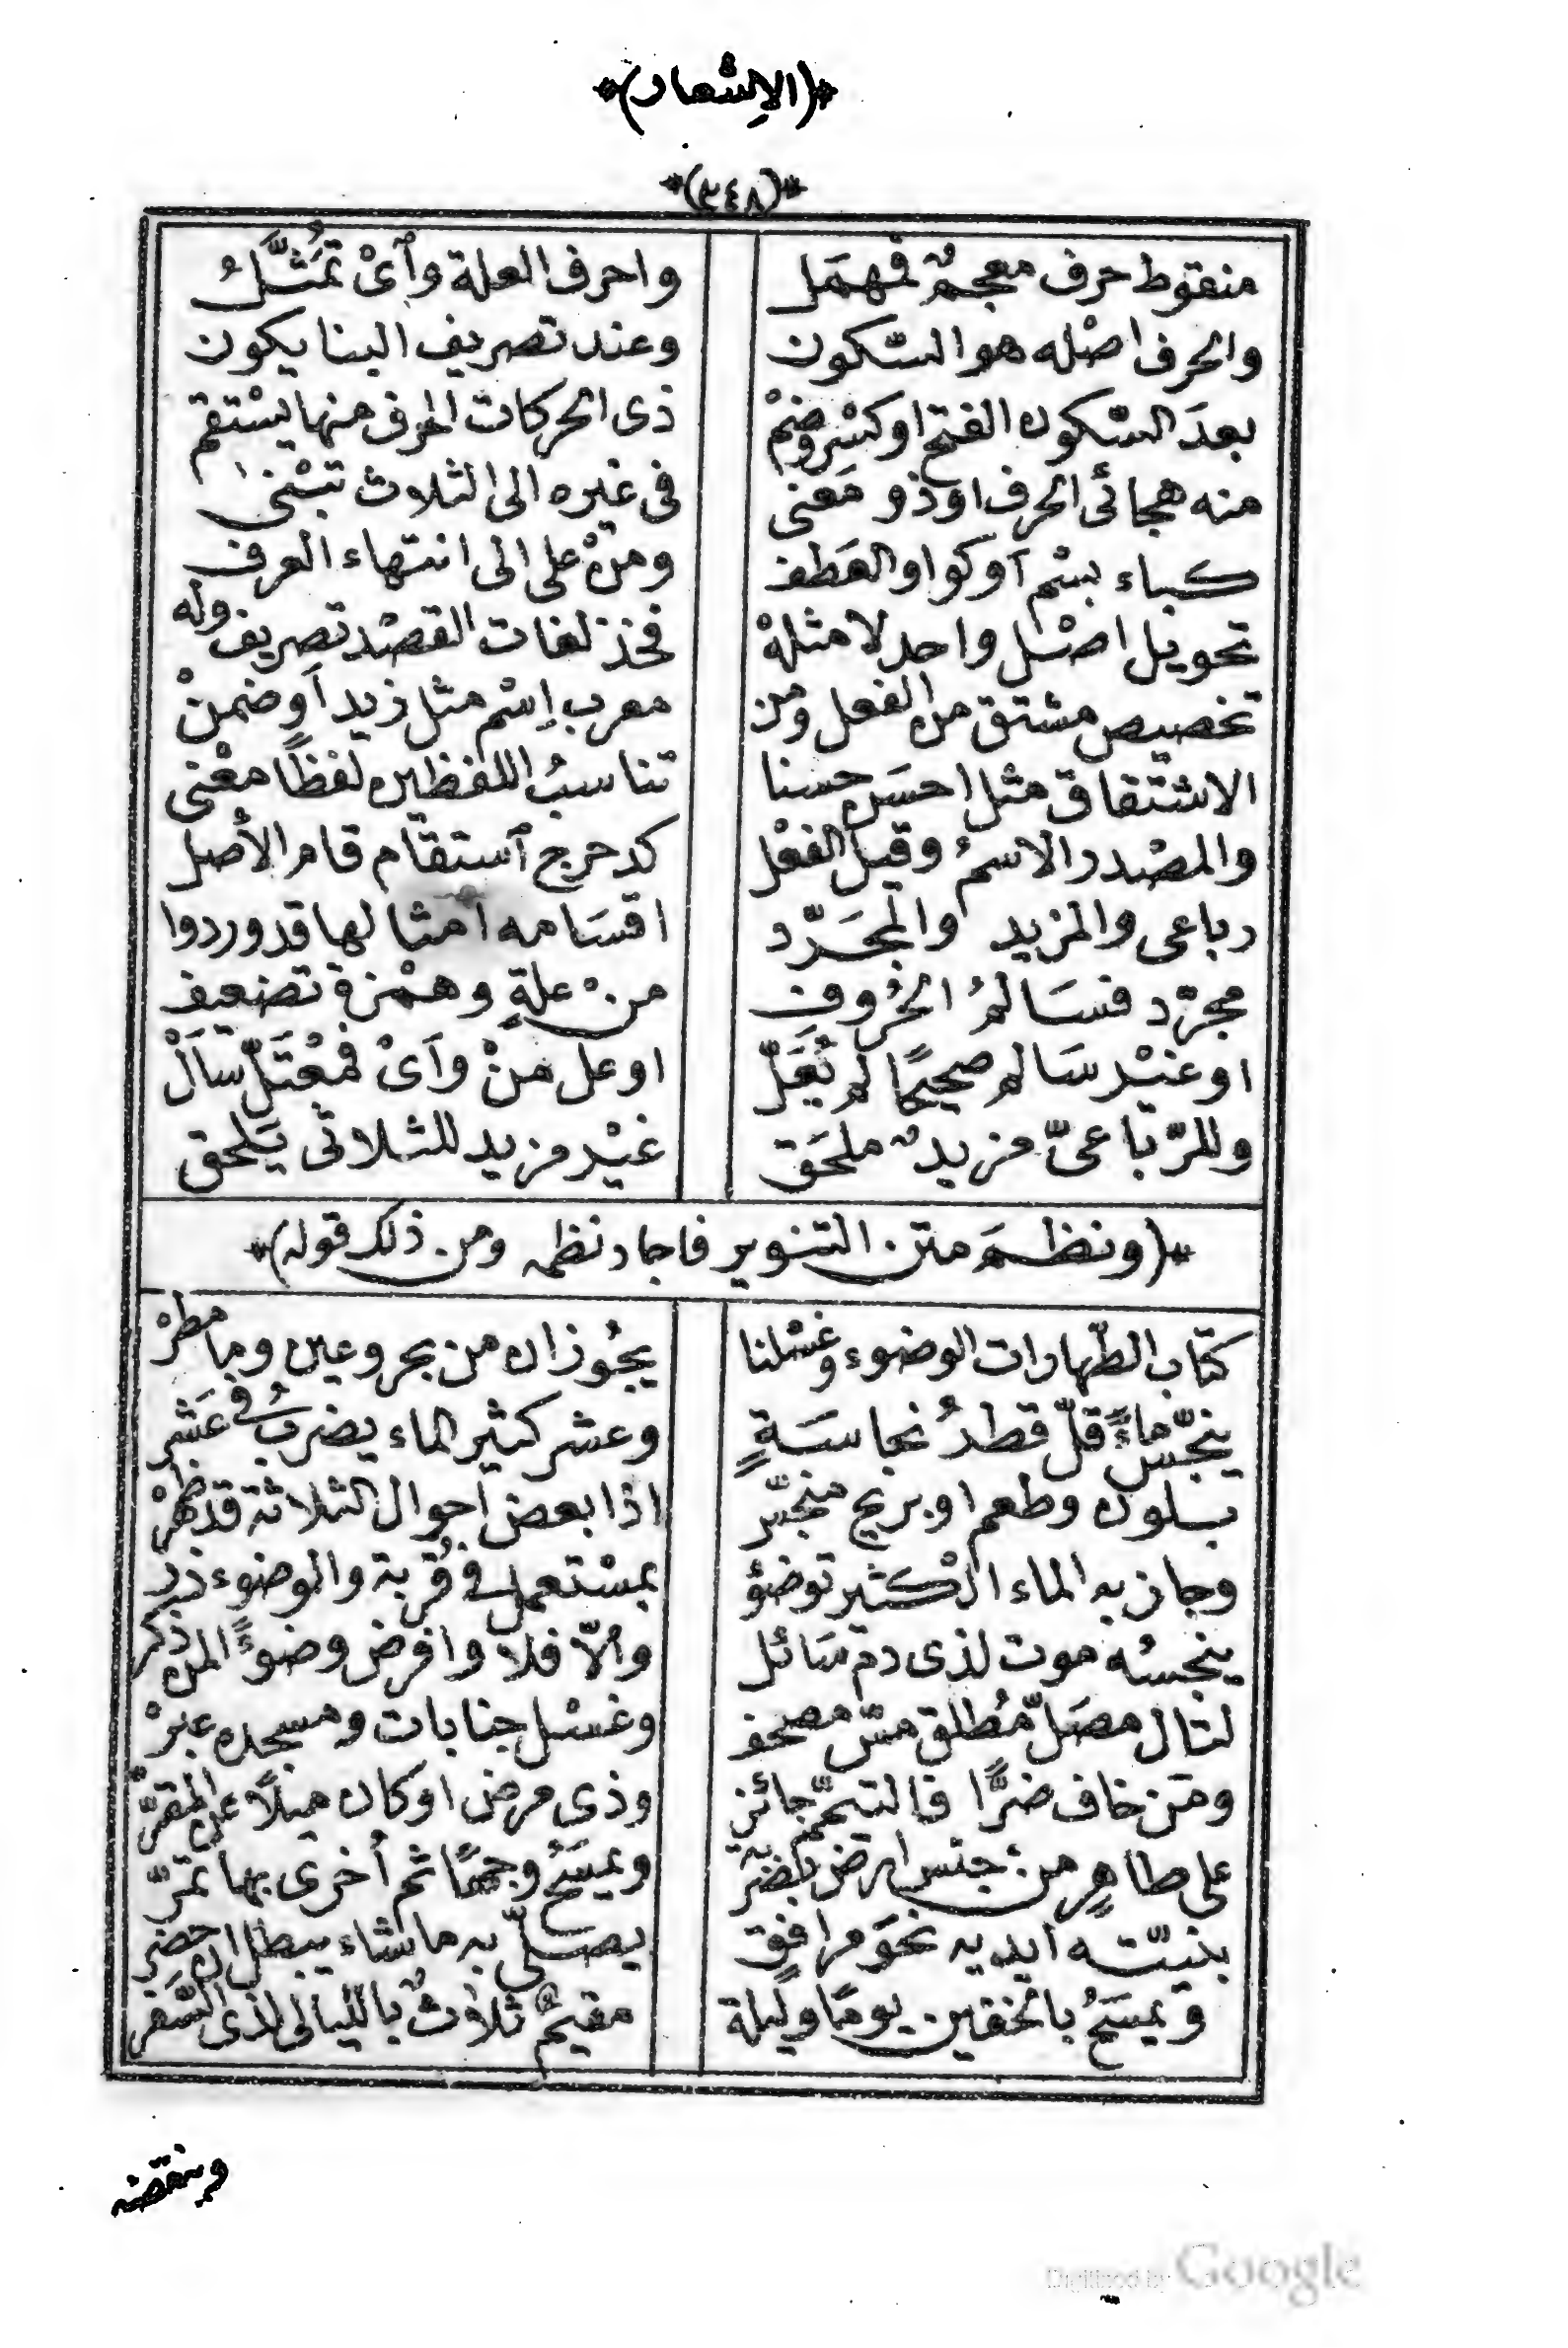 ﴿(الإشعار)﴾
*(٣٤٨)*
منقوط حرف معجمٌ فمهمَل واحرف العلة وأىْ تُمَثَّلُ
والحرف اصْله هو السّكون وعند تصريف البنا يكون
بعدَ السّكون الفتح اوكسْروضمْ ذى الحركات الحرف منها يسْتقم
منه هجائى الحرف اوذو مَعنى فى غيره الى الثلاث تبْنى
كباء بسْم أوكواو العَطف ومنْ على الى انتهاء العرف
تحويل اصْل واحد لامثلهْ فخذ لغات القصْد تصريف وله
تخصيص مشتق من الفعل ومن معرب إسْم مثل زيد أوضمنْ
الاشتقاق مثل احسَن حسنا تناسبُ اللفظين لفظًا معْنى
والمصْدر الاسمُ وقيل الفعْل كدحرج استقام قام الأصل
رباعى والمزيد والمجَرّد اقسَامه امثالها قدوردوا
مجرّد فسَالمُ الحُروفِ منْ علةٍ وهمْزة تضعيف
اوغيْر سَالم صحيحًا لم يُعَلّ اوعل منْ وَاىْ فمعْتَلّ سَألْ
وللرّباعىّ مزيدٌ ملحَق غيْر مزيد للثلاثى يَلحق
*(ونظمَ متن التنوير فاجاد نظمه ومن ذلك قوله)*
كتاب الطّهارات الوضوء وغسْلنا يجُوزان من بحر وعين وبا مطرْ
ينجّس ماءً قلّ قطرُ نجاسَةٍ وعشر كثير الماء يضربُ فى عَشر
بلون وطعم او بريح منجّس اذا بعض احوال الثلاثة قدظهرْ
وجاز به الماء الكْثير توضؤ بمسْتعمل فى قُربة والوضوء
ينجسُه موت لذى دم سَائل والّا فلا وافرض وضوءًا لمن ذكر
لتال مصَلّ مُطلق مسّ مصحف وغسْل جنابات ومسجده عبرْ
ومَن خاف ضرًّا فالتيمّم جائز وذى مرض اوكان ميلًا عن المقرّ
على طاهرٍ من جنس ارض بضربةٍ ويمسَحُ وجهًا ثم أخرى بها تمرّ
بنيّته ايديه نحوَ مرافقٍ يصَلّى به ماشاء يبطل ان حضر
ويمسَحُ بالخفين يومًا وليلة مقيمٌ ثلاثٌ بالليالى لذى السَّفر
وينقضه
Digitized by Google